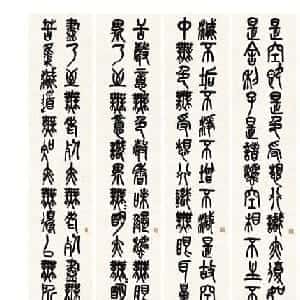 是空即是色受想行識亦復如
是舍利子是諸法空相不生不
滅不垢不淨不增不減是故空
中無色無受想行識無眼耳鼻
舌身意無色聲香味觸法無眼
界乃至無意識界無明亦無明
盡乃至無老死亦無老死盡無
苦集滅道無智亦無得以無所